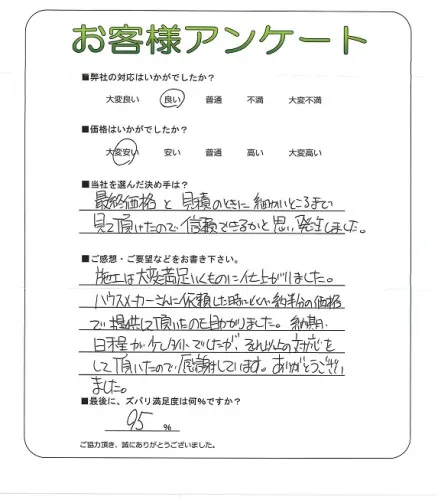 お客様アンケート
■弊社の対応はいかがでしたか?
大変良い 良い 普通 不満 大変不満
■価格はいかがでしたか?
大変安い 安い 普通 高い 大変高い
■当社を選んだ決め手は?
最終価格と見積のときに細かいところまで
見て頂けたので信頼できるかと思い発注しました。
■ご感想・ご要望などをお書き下さい。
施工は大変満足いくものに仕上がりました。
ハウスメーカーさんに依頼した時に比べ約半分の価格
で提供して頂いたのも助かりました。納期
日程が少しタイトでしたが、それ以上の対応を
して頂いたので感謝しています。ありがとうござい
ました。
■最後に、ズバリ満足度は何%ですか?
95 %
ご協力頂き、誠にありがとうございました。